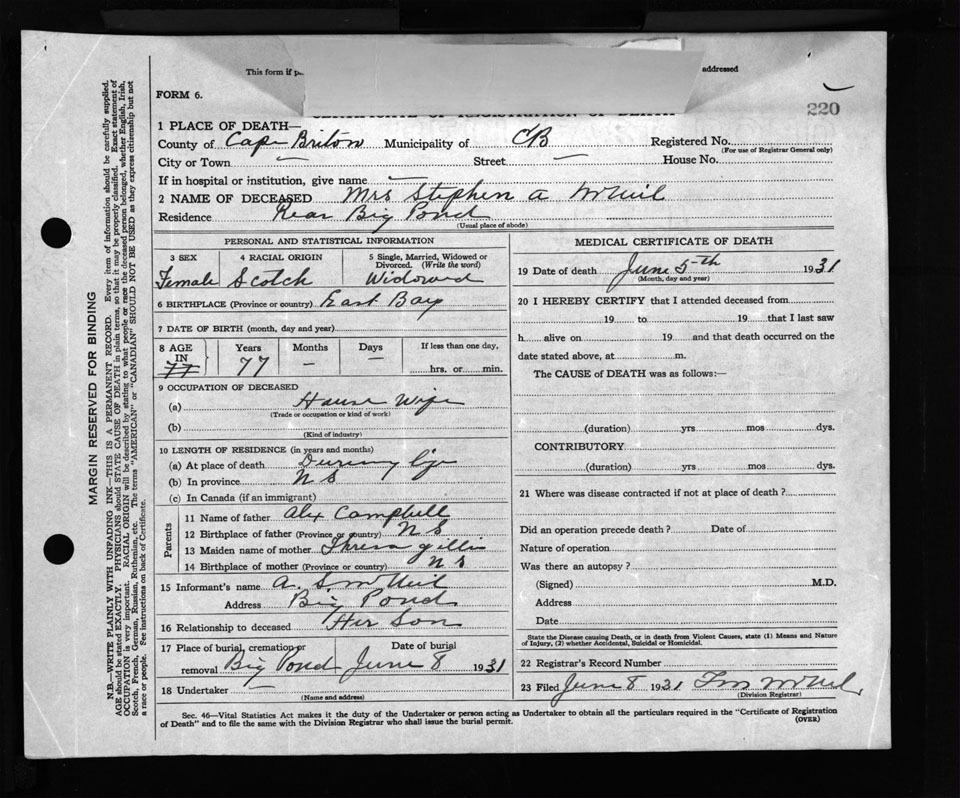 This form if
addressed
FORM 6.
220
1 PLACE OF DEATH—
County of Cape Briton Municipality of CB Registered No.
(For use of Registrar General only)
City or Town — Street — House No.
If in hospital or institution, give name —
2 NAME OF DECEASED Mrs Stephen A McNeil
Residence Rear Big Pond
(Usual place of abode)
PERSONAL AND STATISTICAL INFORMATION
3 SEX 4 RACIAL ORIGIN 5 Single, Married, Widowed or Divorced. (Write the word)
Female Scotch Widowed
6 BIRTHPLACE (Province or country) East Bay
7 DATE OF BIRTH (month, day and year)
8 AGE IN 77 Years Months Days If less than one day,
77 — — hrs. or min.
9 OCCUPATION OF DECEASED
(a) House Wife
(Trade or occupation or kind of work)
(b)
(Kind of industry)
10 LENGTH OF RESIDENCE (in years and months)
(a) At place of death During life
(b) In province N S
(c) In Canada (if an immigrant)
Parents
11 Name of father Alex Campbell
12 Birthplace of father (Province or country) N S
13 Maiden name of mother Thresa Gillis
14 Birthplace of mother (Province or country) N S
15 Informant's name A. S. McNeil
Address Big Pond
16 Relationship to deceased Her Son
17 Place of burial, cremation or removal Big Pond Date of burial June 8 1931
18 Undertaker —
(Name and address)
MEDICAL CERTIFICATE OF DEATH
19 Date of death June 5th 1931
(Month, day and year)
20 I HEREBY CERTIFY that I attended deceased from
19 to 19 that I last saw
h alive on 19 and that death occurred on the
date stated above, at m.
The CAUSE of DEATH was as follows:—
(duration) yrs mos dys.
CONTRIBUTORY
(duration) yrs mos dys.
21 Where was disease contracted if not at place of death?
Did an operation precede death? Date of
Nature of operation
Was there an autopsy?
(Signed) M.D.
Address
Date
State the Disease causing Death, or in death from Violent Causes, state (1) Means and Nature
of Injury, (2) whether Accidental, Suicidal or Homicidal.
22 Registrar's Record Number
23 Filed June 8 1931 McNeil
(Division Registrar)
Sec. 46—Vital Statistics Act makes it the duty of the Undertaker or person acting as Undertaker to obtain all the particulars required in the "Certificate of Registration
of Death" and to file the same with the Division Registrar who shall issue the burial permit. (OVER)
MARGIN RESERVED FOR BINDING
N.B.—WRITE PLAINLY WITH UNFADING INK—THIS IS A PERMANENT RECORD. Every item of information should be carefully supplied.
AGE should be stated EXACTLY. PHYSICIANS should STATE CAUSE OF DEATH in plain terms, so that it may be properly classified. Exact statement of
OCCUPATION is very important. RACIAL ORIGIN will be described by stating to what people or race the deceased person belonged, whether English, Irish,
Scotch, French, German, Russian, Ruthenian, etc. The terms "AMERICAN" or "CANADIAN" SHOULD NOT BE USED as they express citizenship but not
a race or people. See instructions on back of Certificate.